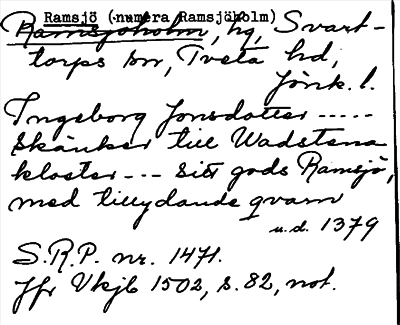 Ramsjö (numera Ramsjöholm)
Ramsjöholm, hg, Svart-
torps sn, Tveta hd,
Jönk. l.
Ingeborg Jonsdotter -----
skänker till Wadstena
kloster --- sitt gods Ramsjö,
med tillydande qvarn
u.d. 1379
S.R.P. nr. 1471.
Jfr Vkjb 1502, s. 82, not.